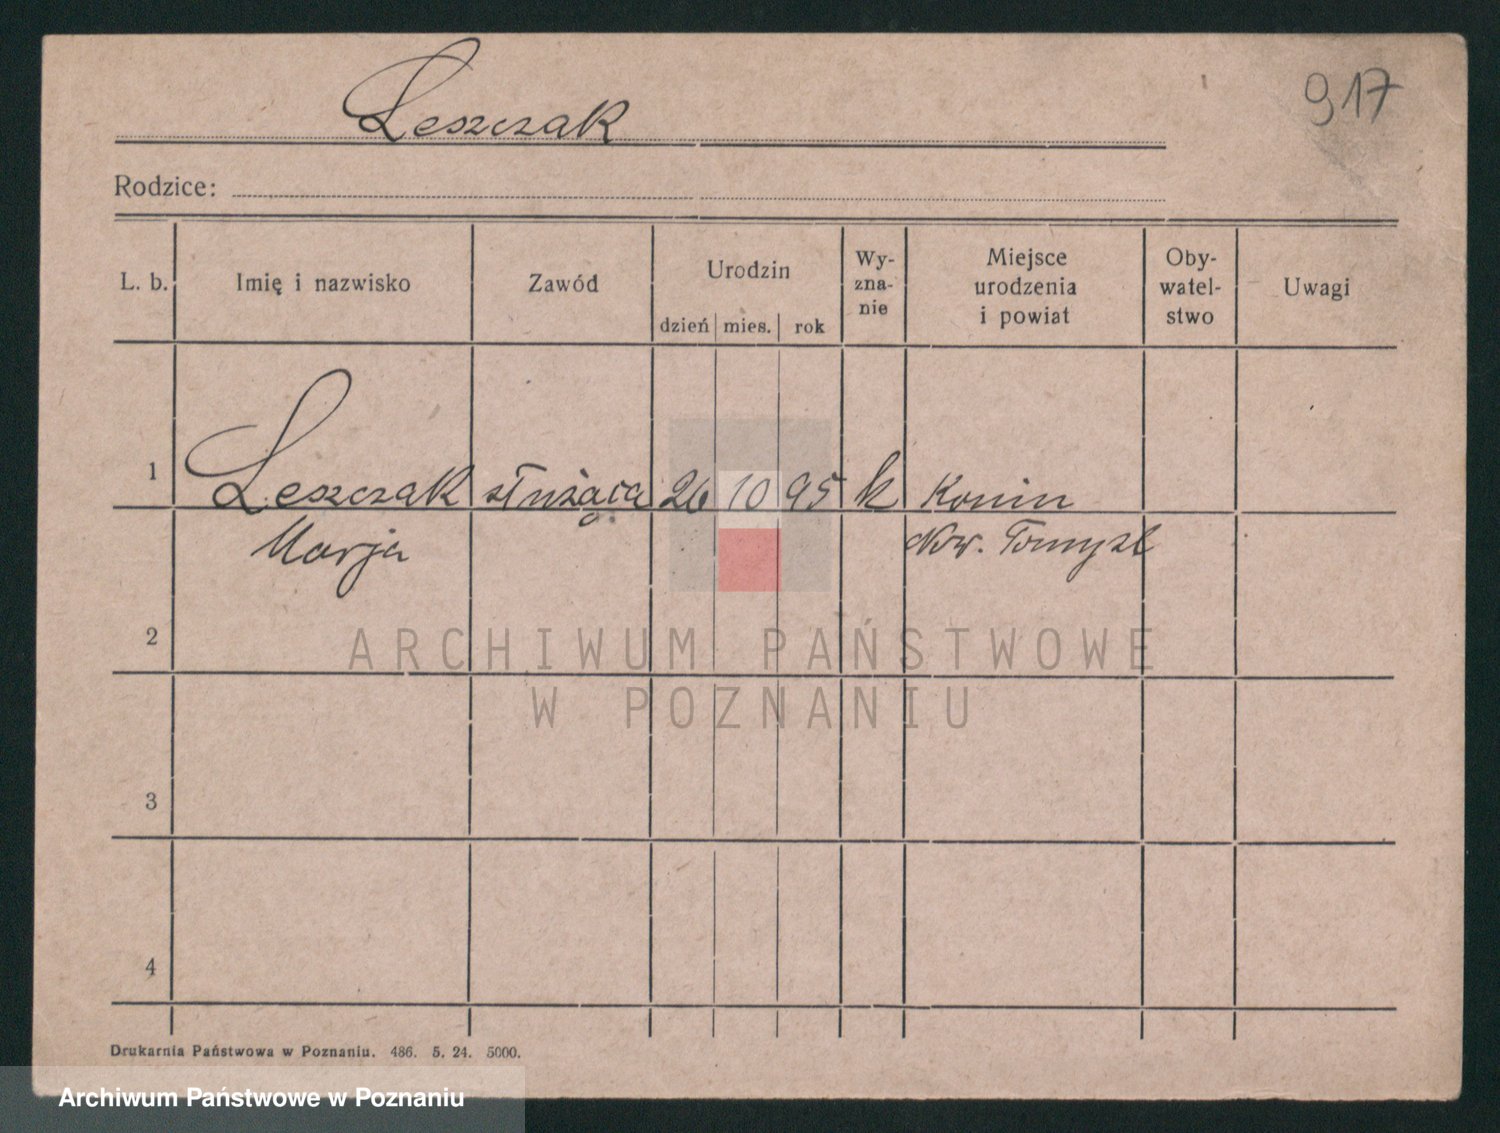 Leszczak
917
Rodzice:
L. b.
Imię i nazwisko
Zawód
Urodzin
dzień mies. rok
Wy-
zna-
nie
Miejsce
urodzenia
i powiat
Oby-
watel-
stwo
Uwagi
1 Leszczak służąca 26 10 95 k Konin
Marja Now. Tomyśl
2
3
4
Drukarnia Państwowa w Poznaniu. 486. 5. 24. 5000.
ARCHIWUM PAŃSTWOWE
W POZNANIU
Archiwum Państwowe w Poznaniu